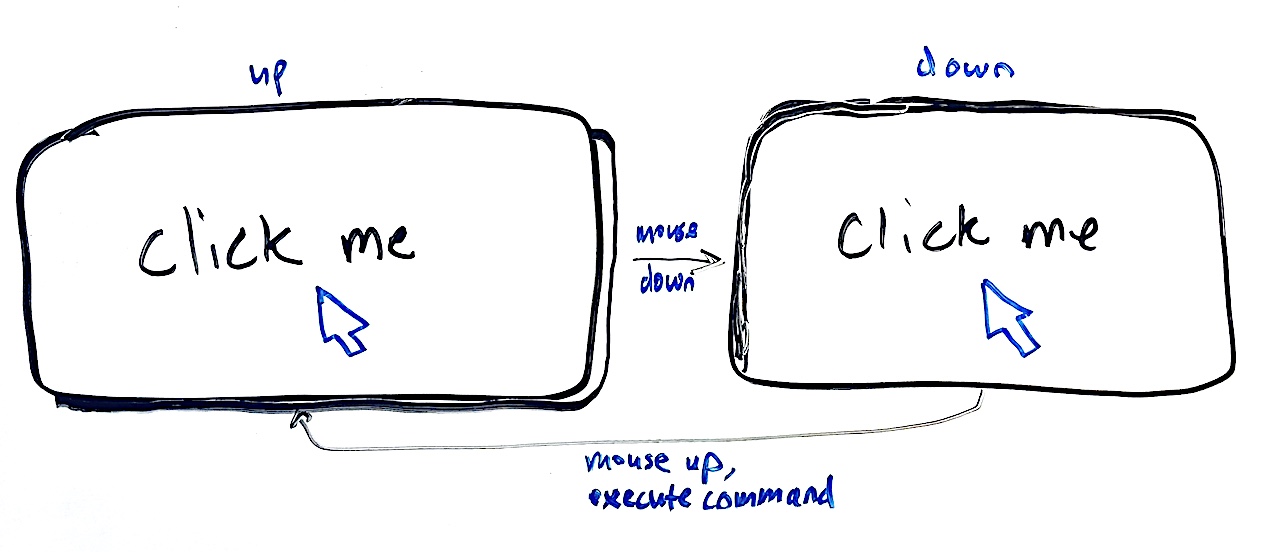 up
down
click me
mouse
down
click me
mouse up,
execute command